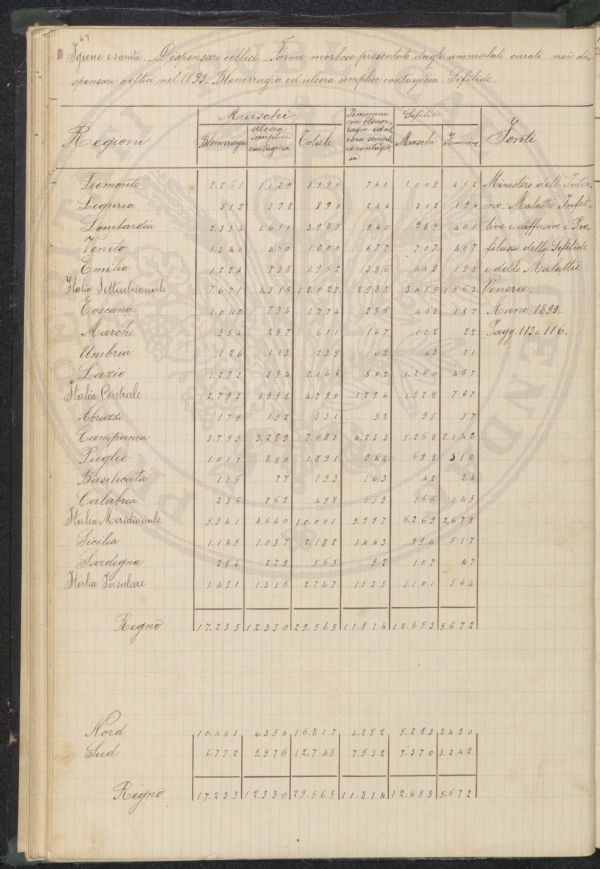 68
Igiene e sanità. Dispensari celtici. Forme morbose presentate dagli ammalati curati nei di-
spensari celtici nel 1899. Blenorragia ed ulcera semplice contagiosa. Sifilide.
Regioni Maschi Femmine con blenorragia ed ulcera semplice contagiosa Sifilide Fonti
Blenorragia Ulcera semplice contagiosa Totale Maschi Femmine
Piemonte 2.261 1.129 3.390 741 1.008 462 Ministero dell'Inter-
Liguria 512 378 890 244 302 194 no. Malattie Infet-
Lombardia 2.334 1.651 3.985 940 989 405 tive e diffusive e Pro-
Veneto 1.340 460 1.800 477 707 407 filassi della Sifilide
Emilia 1.224 738 1.962 586 449 195 e delle Malattie
Italia Settentrionale 7.671 4.356 12.027 2.988 3.455 1.663 Veneree.
Toscana 1.040 734 1.774 256 402 187 Anno 1899.
Marche 354 257 611 167 112 82 Pagg. 113 a 116.
Umbria 126 113 239 69 48 31
Lazio 1.272 894 2.166 802 1.266 467
Italia Centrale 2.792 1.998 4.790 1.294 1.828 767
Abruzzi 179 152 331 98 95 57
Campania 3.799 3.289 7.088 4.233 5.268 2.142
Puglie 1.011 880 1.891 844 698 310
Basilicata 116 77 193 163 42 24
Calabria 236 262 498 659 166 145
Italia Meridionale 5.341 4.660 10.001 5.997 6.269 2.678
Sicilia 1.145 1.037 2.182 1.443 994 517
Sardegna 286 279 565 92 107 47
Italia Insulare 1.431 1.316 2.747 1.535 1.101 564
Regno 17.235 12.330 29.565 11.814 12.653 5.672
Nord 10.463 6.354 16.817 4.282 5.283 2.430
Sud 6.772 5.976 12.748 7.532 7.370 3.242
Regno 17.235 12.330 29.565 11.814 12.653 5.672